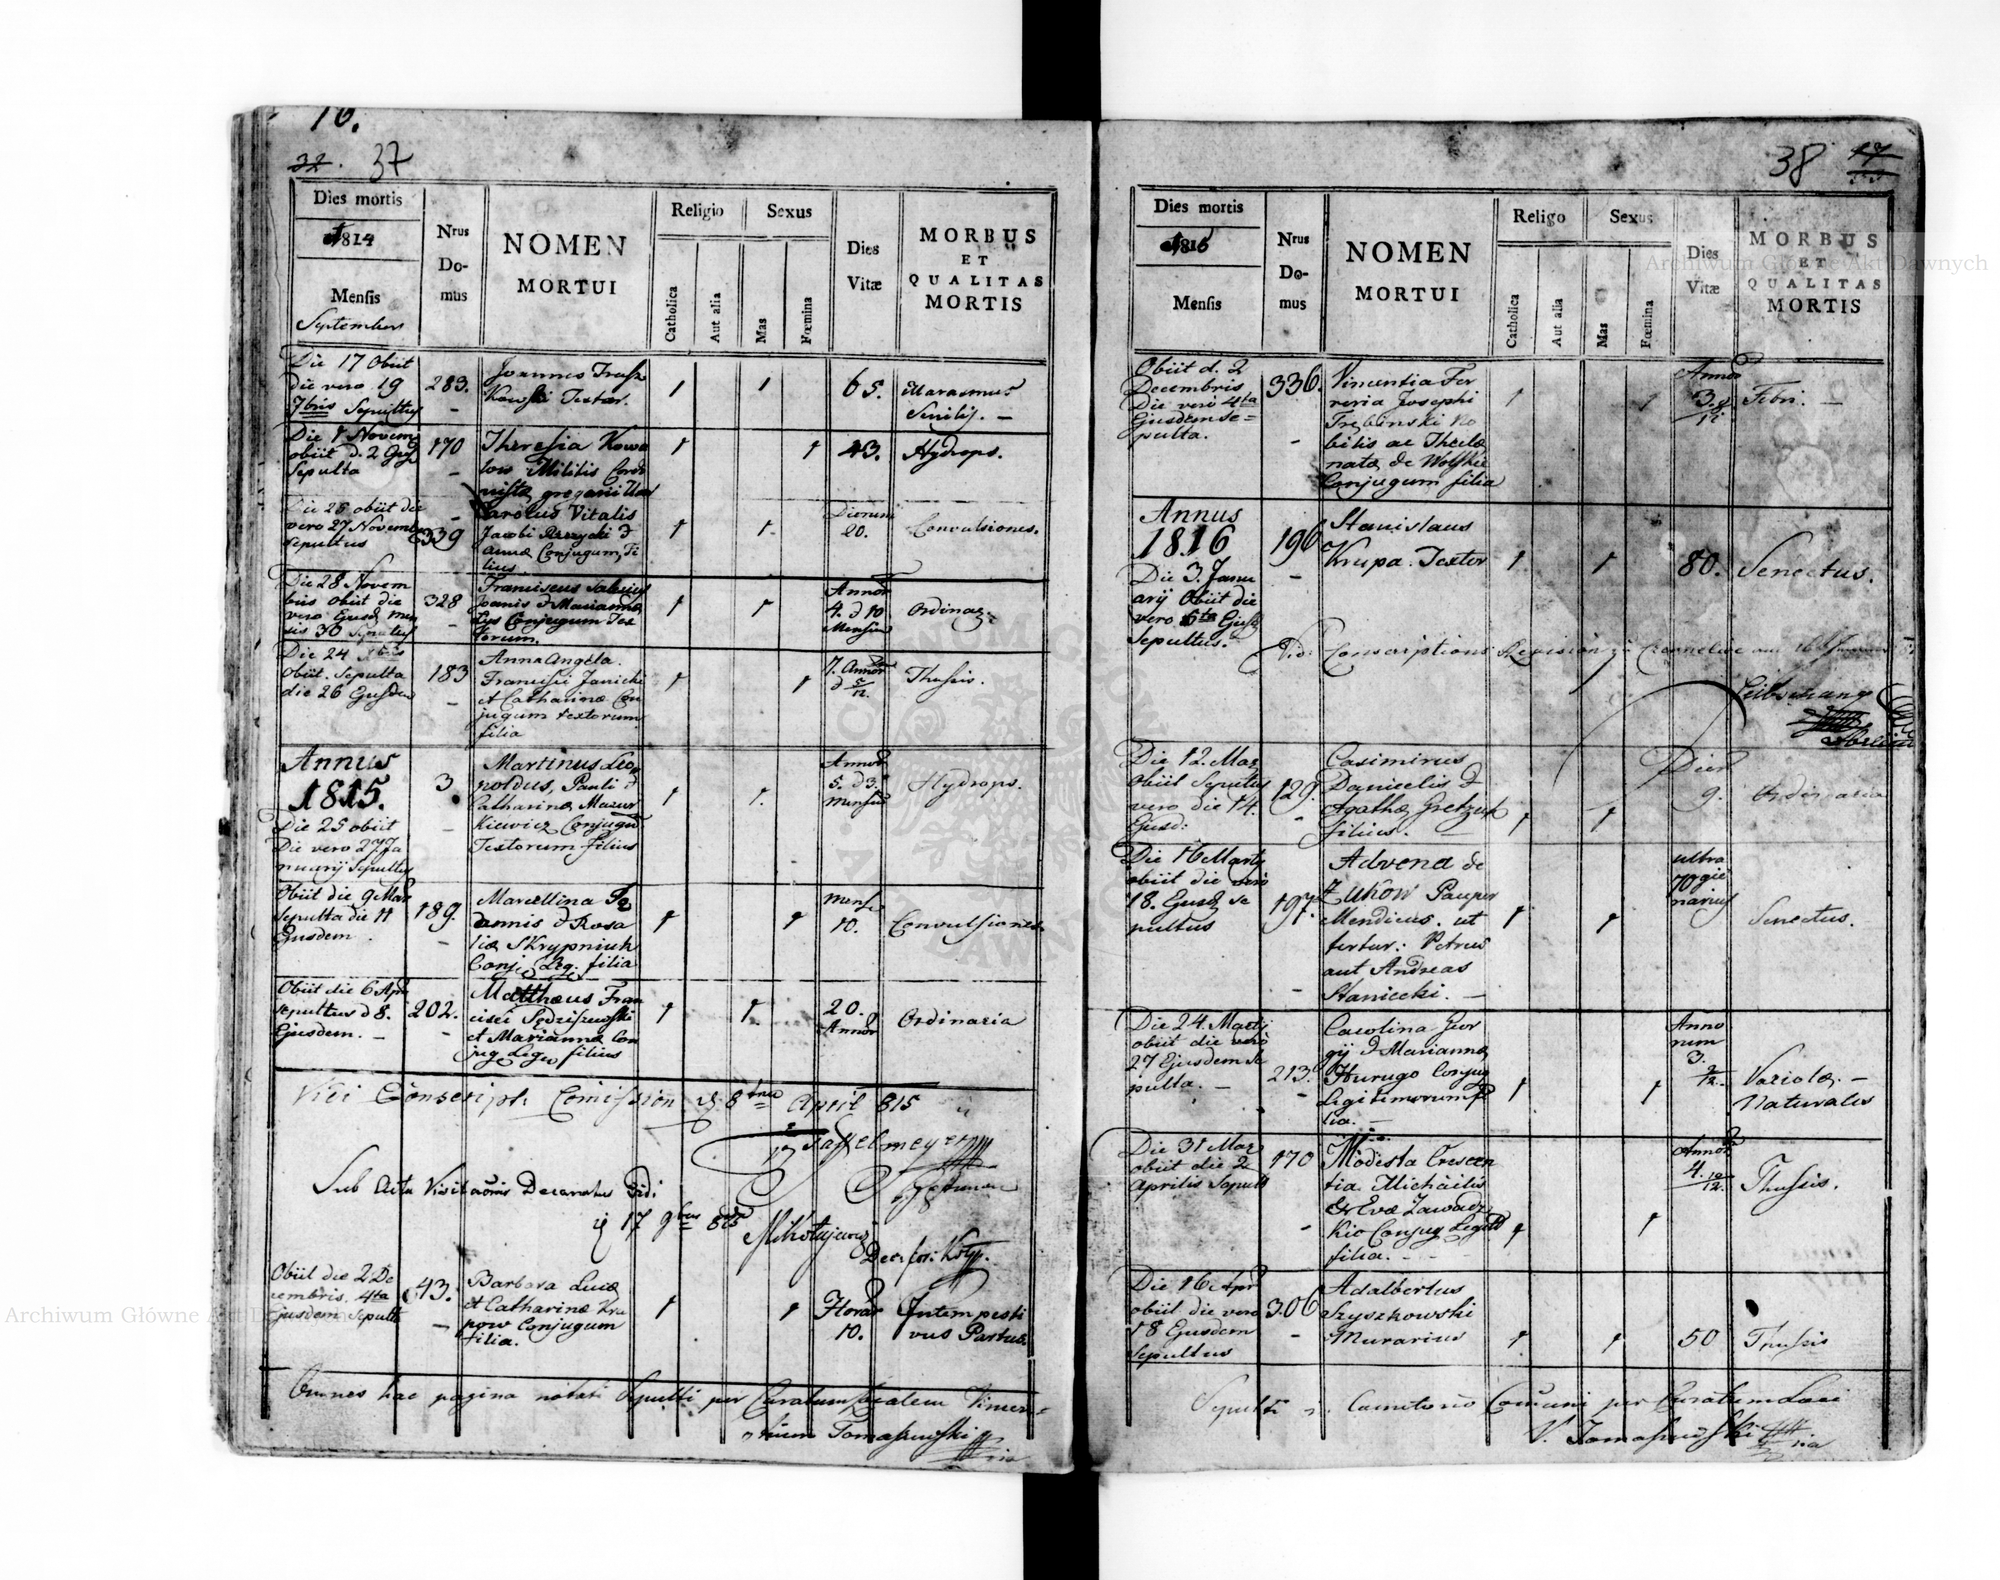 16.
32. 37
Dies mortis
1814
Mensis
Septembris
Nrus
Do-
mus
NOMEN
MORTUI
Religio
Catholica
Aut alia
Sexus
Mas
Fœmina
Dies
Vitæ
MORBUS
ET
QUALITAS
MORTIS
Die 17 Obiit
die vero 19
7bris Sepultus
283.
Joannes
Textor.
1
1
65.
Marasmus
Senilis.
Die 1 Novem
obiit d. 2
Sepulta
170
Theresia Kowa
Militis
gregarii
1
1
43.
Hydrops.
Die 25 obiit die
vero 27 Novemb
Sepultus
339
Carolus Vitalis
Jacobi &
Annæ Conjugum, Fi
lius
1
1.
Dierum
20.
Convulsiones.
Die 28 Novem
bris obiit die
vero Ejusd men
sis 30 Sepultus
328
Franciscus Salesius
Joannis & Mariannæ
Lys Conjugum Tex
torum.
1
1
Annor
4. & 10
Mensium
Ordinar.
Die 24
Obiit. Sepulta
die 26 Ejusdem
183
Anna Angela.
Francisci Janicki
et Catharinæ Con
jugum textorum
filia
1
1
7. Annor
& 5/12.
Thussis.
Annus
1815.
Die 25 obiit
Die vero 27 Ja
nuarij Sepultus
3
Martinus Leo
poldus, Pauli &
Catharinæ Mazur
kiewicz Conjugum
Textorum filius
1
1.
Annor
5. & 3.
Mensium
Hydrops.
Obiit die 9 Mar
Sepulta die 11
Ejusdem.
189.
Marcellina Jo
annis & Rosa
liæ Skrypniuk
Conj. Leg. filia
1
1
Mens
10.
Convulsiones
Obiit die 6 Apr
Sepultus d 8.
Ejusdem.
202.
Matthæus Fran
cisci Sędziszewski
et Mariannæ Con
jug Leg filius
1
1.
20.
Annor
Ordinaria
Vidi Conscript. Comission 8 April 815
Sub Actu Visitaõnis Decanatus Vidi
17 9bris 815
Obiit die 2 De
cembris, 4ta
Ejusdem Sepulta
43.
Barbara Lucæ
et Catharinæ Kra
pow Conjugum
filia.
1
1
Horar
10.
Intempesti
vus Partus
Omnes hac pagina notati Sepulti per Curatum Localem Vincen=
tium Tomaszewski
38
Dies mortis
1815
Mensis
Nrus
Do-
mus
NOMEN
MORTUI
Religo
Catholica
Aut alia
Sexus
Mas
Fœmina
Dies
Vitæ
MORBUS
ET
QUALITAS
MORTIS
Obiit d. 2
Decembris
Die vero 4ta
Ejusdem Se=
pulta.
336.
Vincentia Fer
reria Josephi
Trębinski No
bilis ac Theclæ
natæ de Wolskie
Conjugum filia
1
1
Annor
3. 8/12
Febri.
Annus
1816
Die 3. Janu
arij Obiit die
vero 5ta Ejusd
Sepultus.
196
Stanislaus
Krupa. Textor
1
1
80.
Senectus.
Die 12. Mar
obiit Sepultus
vero die 14.
Ejusd:
129.
Casimirus
Danielis &
Agathæ
filius.
1
1
Dier
9.
Ordinaria
Die 16 Martij
obiit die vero
18. Ejusd Se
pultus
197.
Advena de
Zukow Pauper
Mendicus. ut
fertur: Petrus
aut Andreas
Staniecki.
1
1
ultra
70gie
narius
Senectus.
Die 24. Martij
obiit die vero
27 Ejusdem Se
pulta.
213.
Carolina Geor
gij & Mariannæ
Hurugo Conjug
Legitimorum fi
lia.
1
1
Anno
rum
3.
2/12.
Variolæ
Naturales
Die 31 Mar
obiit die 2
Aprilis Sepult
170
Modesta Crescen
tia Michaëlis
& Evæ Zawadz
kie Conjug Legitt
filia.
1
1
Annor
4. 10/12.
Thussis.
Die 16 Apr
obiit die vero
18 Ejusdem
Sepultus
306
Adalbertus
Szyszkowski
Murarius
1.
1
50
Thussis
Sepulti in Cæmeterio Com̃uni per Curatum Loci
V. Tomaszewski
Archiwum Główne Akt Dawnych
Archiwum Główne Akt Dawnych